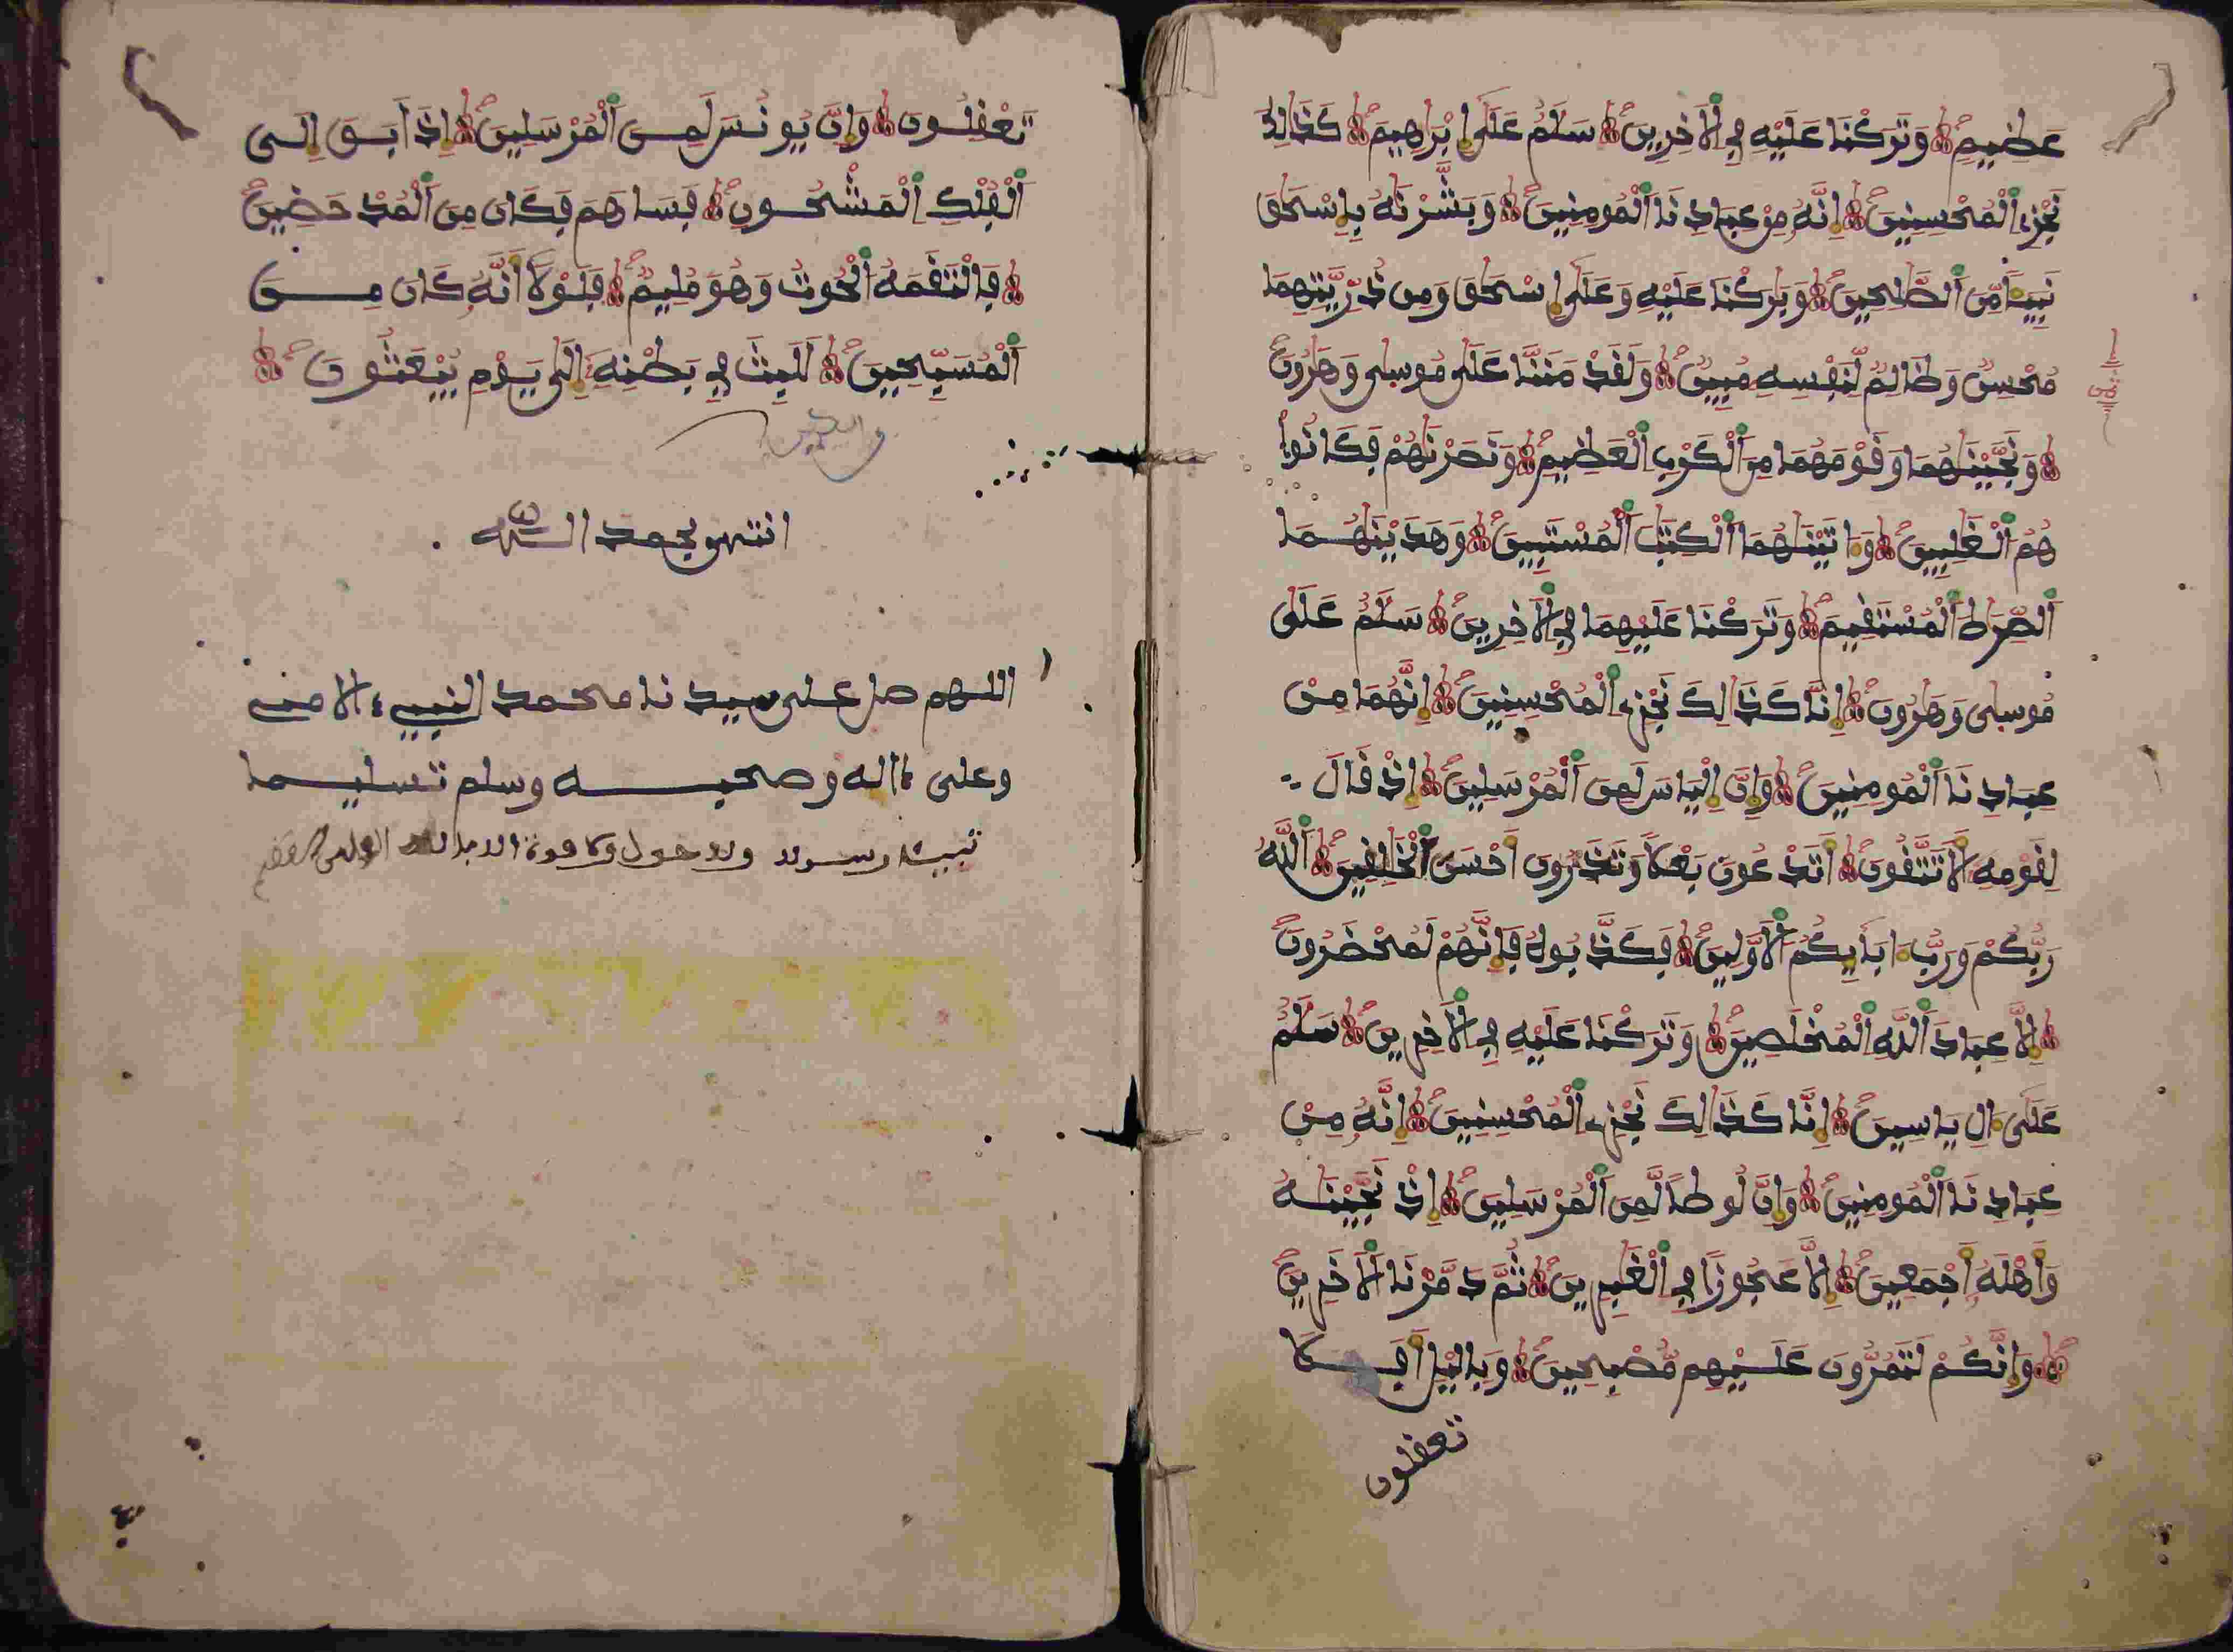 عَظِيمٍ وَتَرَكْنَا عَلَيْهِ فِي الَاخِرِينَ سَلَمٌ عَلَى إِبْرَهِيمَ كَذَالِكَ
نَجْزِي الْمُحْسِنِينَ إِنَّهُ مِنْ عِبَادِنَا الْمُومِنِينَ وَبَشَّرْنَهُ بِإِسْحَقَ
نَبِيَـًٔا مِّنَ الصَّلِحِينَ وَبَرَكْنَا عَلَيْهِ وَعَلَى إِسْحَقَ وَمِن ذُرِّيَّتِهِمَا
مُحْسِنٌ وَظَالِمٌ لِّنَفْسِهِ مُبِينٌ وَلَقَدْ مَنَنَّا عَلَى مُوسَى وَهَرُونَ
وَنَجَّيْنَهُمَا وَقَوْمَهُمَا مِنَ الْكَرْبِ الْعَظِيمِ وَنَصَرْنَهُمْ فَكَانُوا
هُمُ الْغَلِبِينَ وَءَاتَيْنَهُمَا الْكِتَبَ الْمُسْتَبِينَ وَهَدَيْنَهُمَا
الصِّرَطَ الْمُسْتَقِيمَ وَتَرَكْنَا عَلَيْهِمَا فِي الَاخِرِينَ سَلَمٌ عَلَى
مُوسَى وَهَرُونَ إِنَّا كَذَالِكَ نَجْزِي الْمُحْسِنِينَ إِنَّهُمَا مِنْ
عِبَادِنَا الْمُومِنِينَ وَإِنَّ إِلْيَاسَ لَمِنَ الْمُرْسَلِينَ إِذْ قَالَ
لِقَوْمِهِ أَلَا تَتَّقُونَ أَتَدْعُونَ بَعْلًا وَتَذَرُونَ أَحْسَنَ الْخَلِقِينَ اللَّهُ
رَبُّكُمْ وَرَبُّ ءَابَآئِكُمُ الَاوَّلِينَ فَكَذَّبُوهُ فَإِنَّهُمْ لَمُحْضَرُونَ
إِلَّا عِبَادَ اللَّهِ الْمُخْلَصِينَ وَتَرَكْنَا عَلَيْهِ فِي الَاخِرِينَ سَلَمٌ
عَلَى ءَالِ يَاسِينَ إِنَّا كَذَالِكَ نَجْزِي الْمُحْسِنِينَ إِنَّهُ مِنْ
عِبَادِنَا الْمُومِنِينَ وَإِنَّ لُوطًا لَّمِنَ الْمُرْسَلِينَ إِذْ نَجَّيْنَهُ
وَأَهْلَهُ أَجْمَعِينَ إِلَّا عَجُوزًا فِي الْغَبِرِينَ ثُمَّ دَمَّرْنَا الَاخَرِينَ
وَإِنَّكُمْ لَتَمُرُّونَ عَلَيْهِم مُّصْبِحِينَ وَبِالَّيْلِ أَفَلَا
تعقلون
تَعْقِلُونَ وَإِنَّ يُونُسَ لَمِنَ الْمُرْسَلِينَ إِذَ ابَقَ إِلَى
الْفُلْكِ الْمَشْحُونِ فَسَاهَمَ فَكَانَ مِنَ الْمُدْحَضِينَ
فَالْتَقَمَهُ الْحُوتُ وَهُوَ مُلِيمٌ فَلَوْلَا أَنَّهُ كَانَ مِنَ
الْمُسَبِّحِينَ لَلَبِثَ فِي بَطْنِهِ إِلَى يَوْمِ يُبْعَثُونَ
انتهى بحمد الله
اللهم صل على سيدنا محمد النبيء الامي
وعلى ءاله وصحبه وسلم تسليما
ولا حول ولا قوة الا بالله العلي العظيم